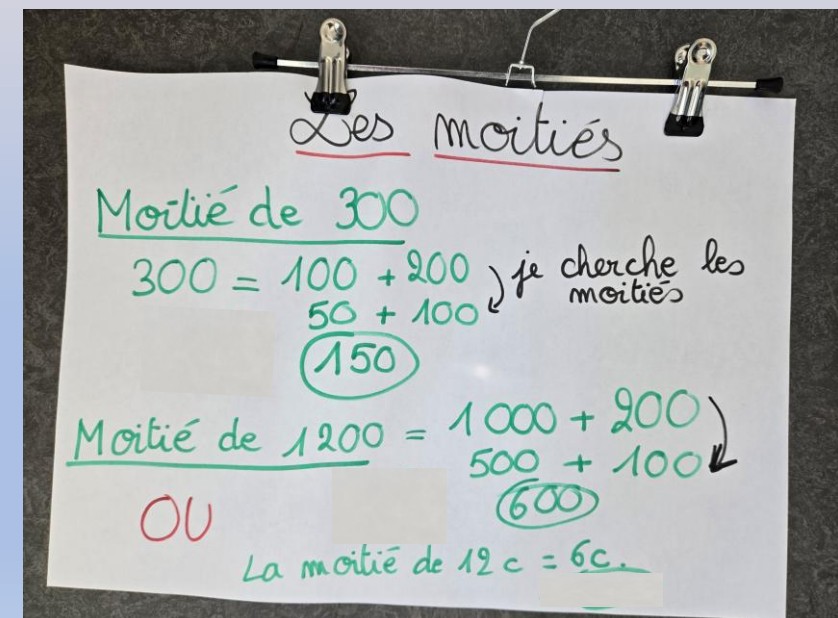 Les moitiés
Moitié de 300
300 = 100 + 200
je cherche les
moitiés
50 + 100
150
Moitié de 1200 = 1 000 + 200
500 + 100
600
OU
La moitié de 12 c = 6c.